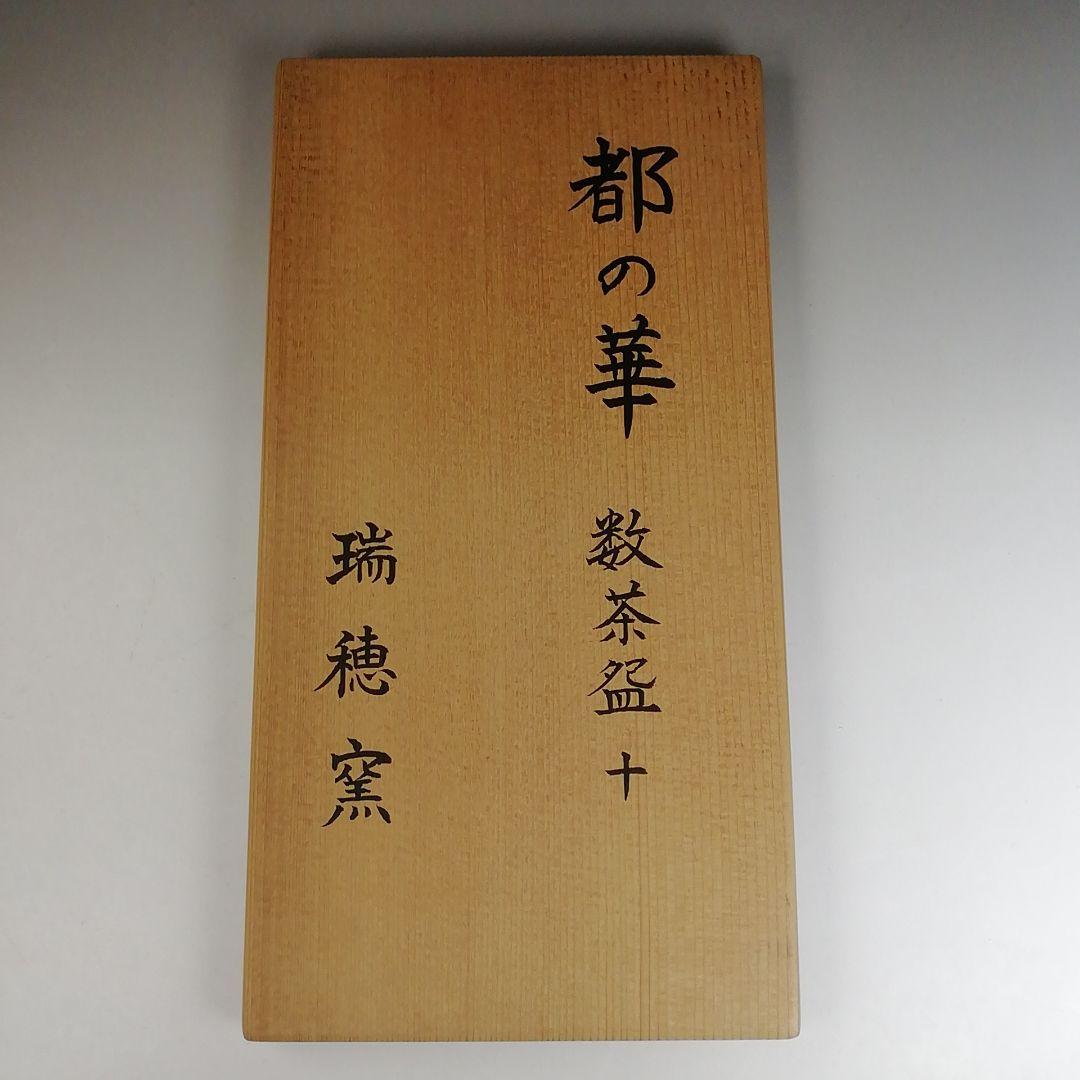 都の華 数茶盌 十
瑞穂窯